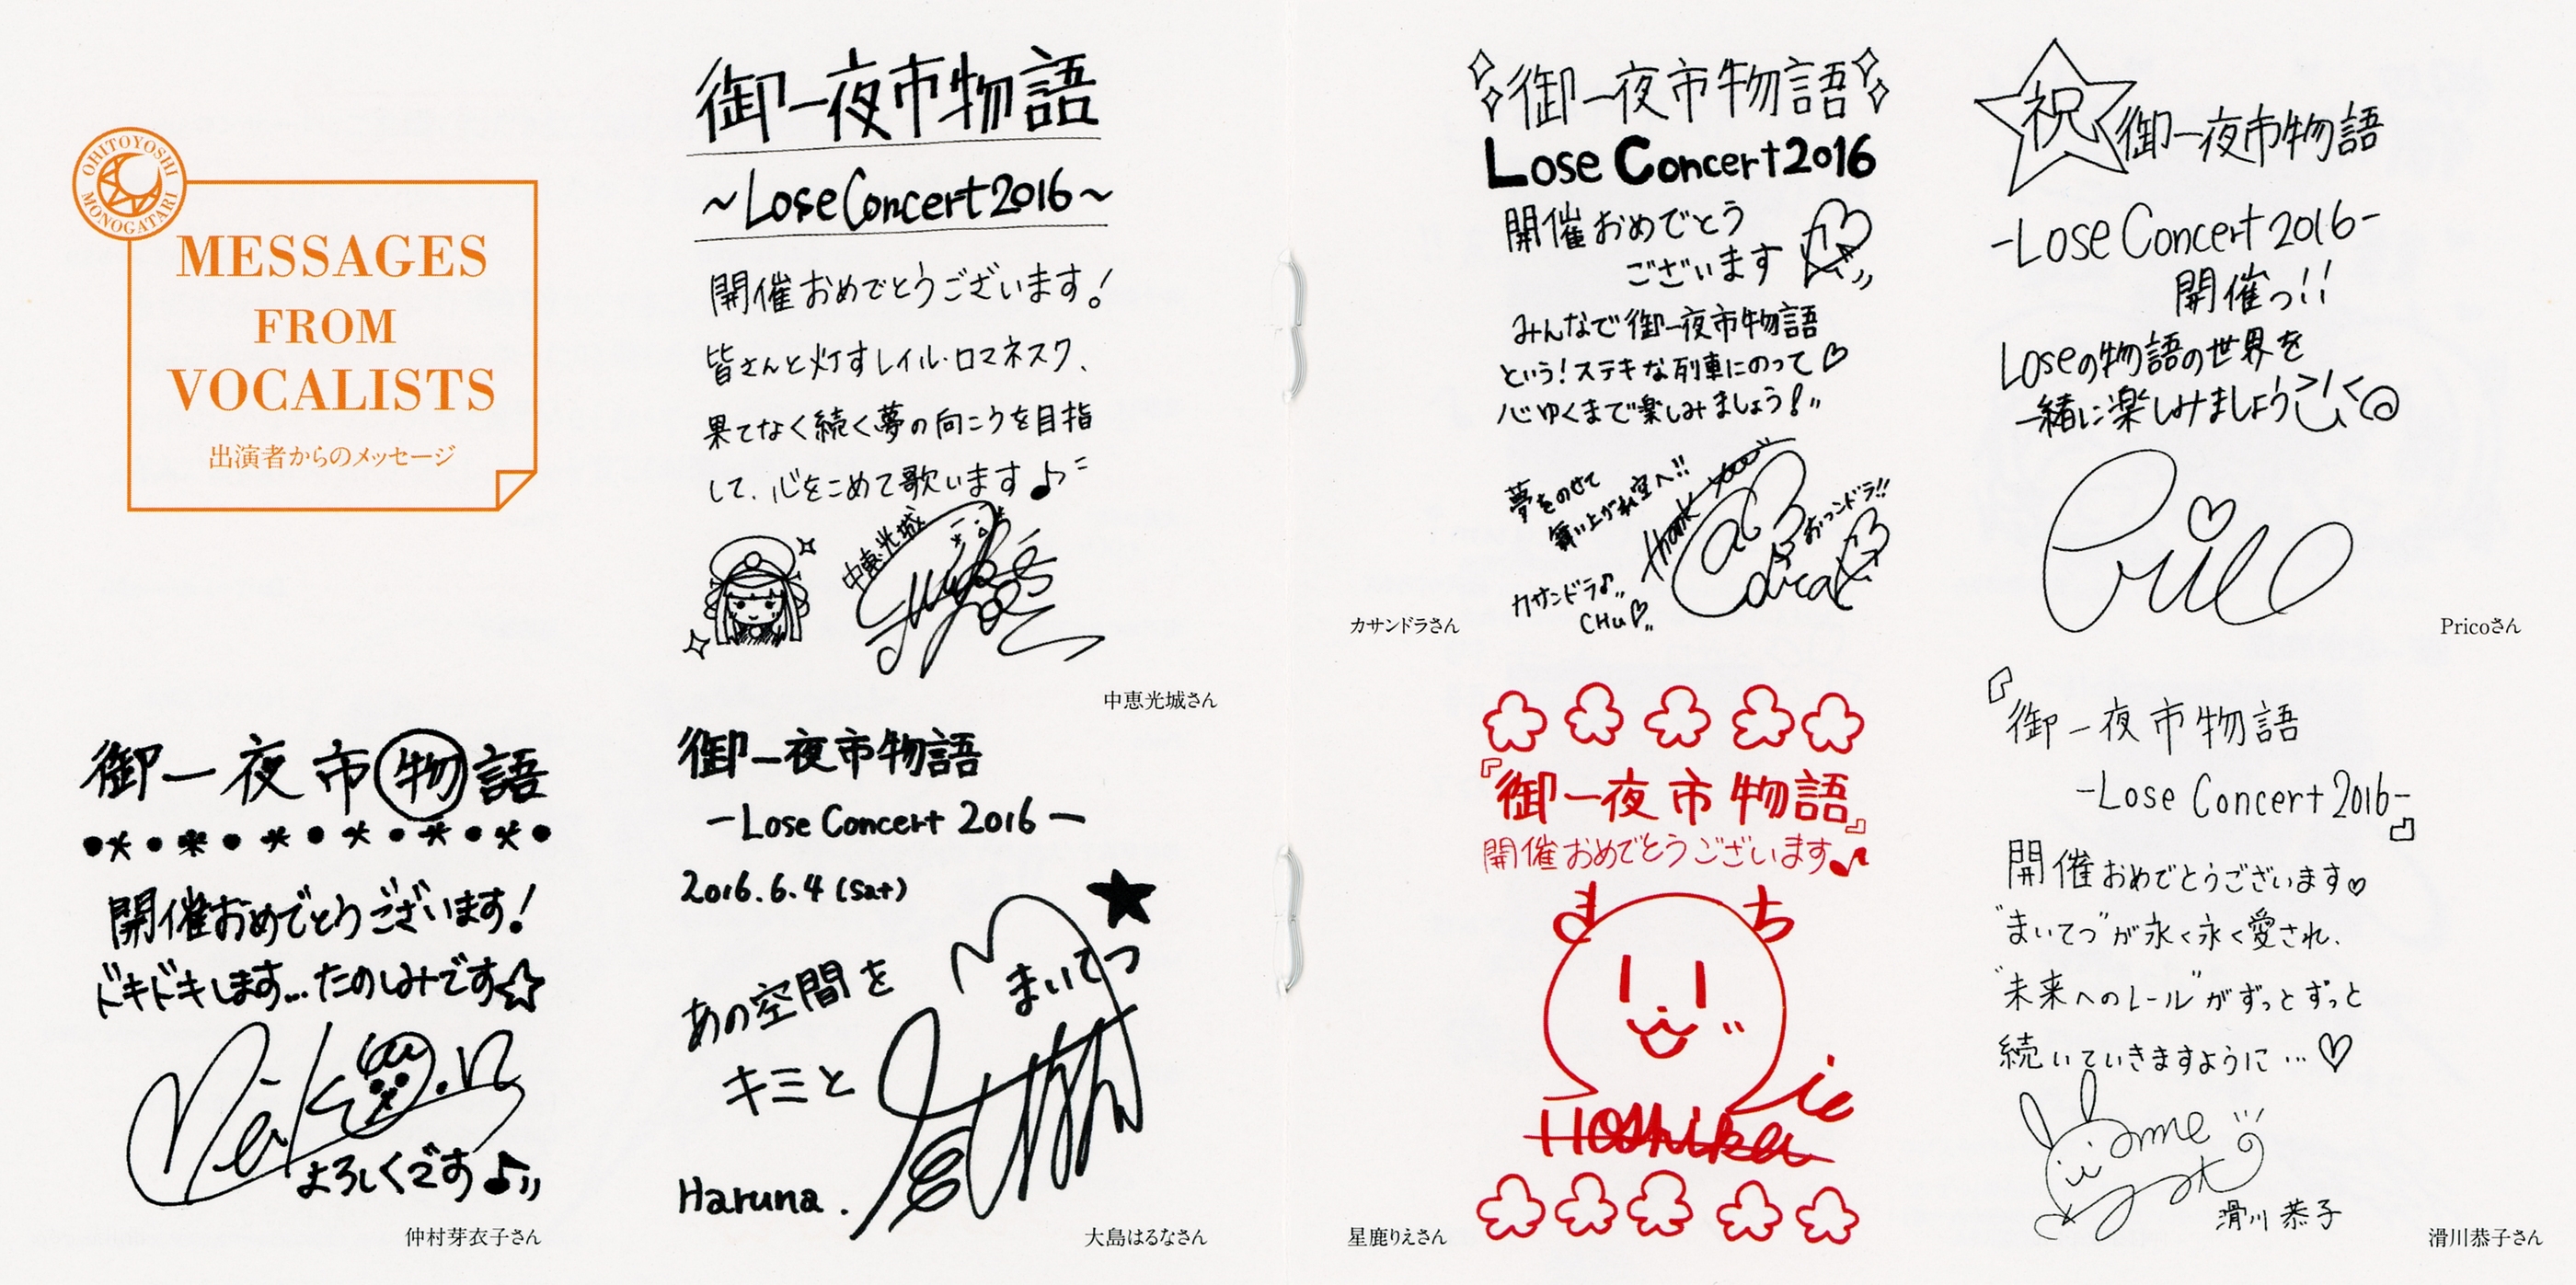 OHITOYOSHI
MONOGATARI
MESSAGES
FROM
VOCALISTS
出演者からのメッセージ
御一夜市物語
~Lose Concert 2016~
開催おめでとうございます!
皆さんと灯すレイル・ロマネスク、
果てなく続く夢の向こうを目指
して、心をこめて歌います♪
中恵光城
中恵光城さん
御一夜市物語
開催おめでとうございます!
ドキドキします…たのしみです☆
よろしくです♪
仲村芽衣子さん
御一夜市物語
-Lose Concert 2016-
2016.6.4(Sat)
★
まいてつ
あの空間を
キミと
Haruna.
大島はるなさん
御一夜市物語
Lose Concert2016
開催おめでとう
ございます
みんなで御一夜市物語
という!ステキな列車にのって♡
心ゆくまで楽しみましょう!
夢をのせて
舞い上がれ空へ!!
Thank you
おっンドラ!!
カサンドラ♪
CHU♡
カサンドラさん
祝
御一夜市物語
-Lose Concert 2016-
開催っ!!
Loseの物語の世界を
一緒に楽しみましょう
Prico
Pricoさん
『御一夜市物語』
開催おめでとうございます♪
Hoshika
星鹿りえさん
『御一夜市物語
-Lose Concert 2016-』
開催おめでとうございます♡
"まいてつ"が永く永く愛され、
"未来へのレール"がずっとずっと
続いていきますように…♡
滑川恭子
滑川恭子さん